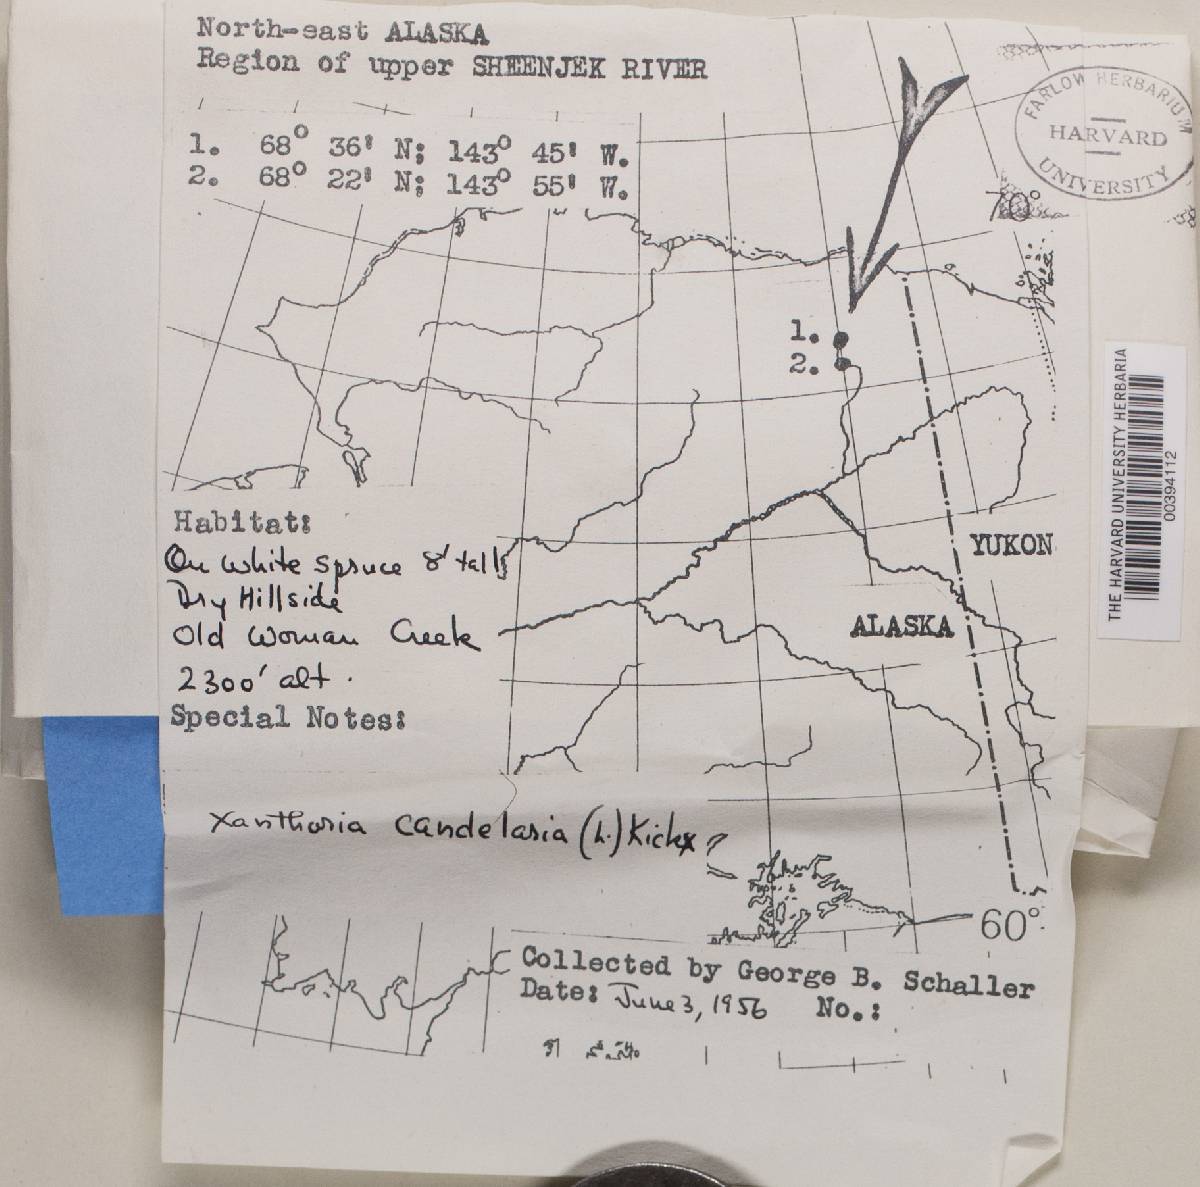 North-east ALASKA
Region of upper SHEENJEK RIVER
1. 68° 36' N; 143° 45' W.
2. 68° 22' N; 143° 55' W.
FARLOW HERBARIUM
HARVARD
UNIVERSITY
70°
1.
2.
THE HARVARD UNIVERSITY HERBARIA
00394112
Habitat:
On white spruce 8' tall
Dry Hillside
Old Woman Creek
2300' alt.
Special Notes:
YUKON
ALASKA
Xanthoria candelaria (L.) Kickx
60°
Collected by George B. Schaller
Date: June 3, 1956 No.: